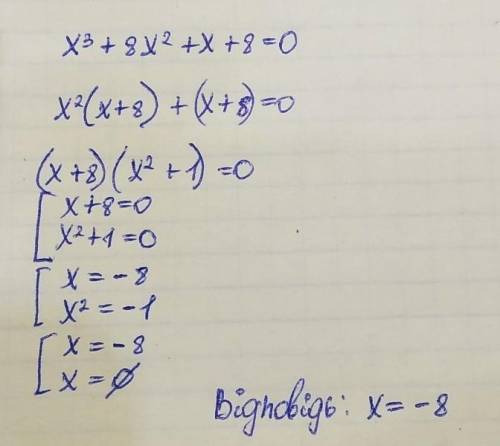 x³ + 8x² + x + 8 = 0
x²(x+8) + (x+8) = 0
(x+8)(x² + 1) = 0
[ x+8=0
x²+1=0
[ x = -8
x² = -1
[ x = -8
x = ∅
Відповідь: x = -8